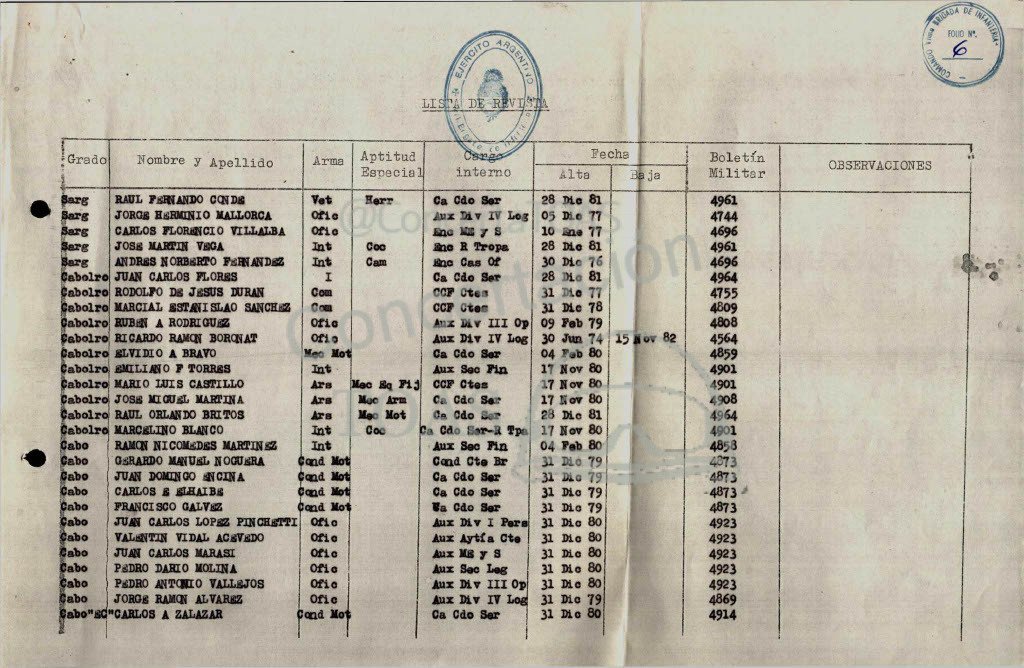 COMANDO BRIGADA DE INFANTERIA
FOLIO Nº.
6
EJERCITO ARGENTINO
LISTA DE REVISTA
Grado Nombre y Apellido Arma Aptitud Especial Cargo interno Fecha Alta Baja Boletín Militar OBSERVACIONES
Sarg RAUL FERNANDO CONDE Vet Herr Ca Cdo Ser 28 Dic 81 4961
Sarg JORGE HERMINIO MALLORCA Ofic Aux Div IV Log 05 Dic 77 4744
Sarg CARLOS FLORENCIO VILLALBA Ofic Enc ME y S 10 Ene 77 4696
Sarg JOSE MARTIN VEGA Int Coc Enc R Tropa 28 Dic 81 4961
Sarg ANDRES NORBERTO FERNANDEZ Int Cam Enc Cas Of 30 Dic 76 4696
Cabolro JUAN CARLOS FLORES I Ca Cdo Ser 28 Dic 81 4964
Cabolro RODOLFO DE JESUS DURAN Com CCF Ctes 31 Dic 77 4755
Cabolro MARCIAL ESTANISLAO SANCHEZ Com CCF Ctes 31 Dic 78 4809
Cabolro RUBEN A RODRIGUEZ Ofic Aux Div III Op 09 Feb 79 4808
Cabolro RICARDO RAMON BORONAT Ofic Aux Div IV Log 30 Jun 74 15 Nov 82 4564
Cabolro ELVIDIO A BRAVO Mec Mot Ca Cdo Ser 04 Feb 80 4859
Cabolro EMILIANO F TORRES Int Aux Sec Fin 17 Nov 80 4901
Cabolro MARIO LUIS CASTILLO Ars Mec Eq Fij CCF Ctes 17 Nov 80 4901
Cabolro JOSE MIGUEL MARTINA Ars Mec Arm Ca Cdo Ser 17 Nov 80 4908
Cabolro RAUL ORLANDO BRITOS Ars Mec Mot Ca Cdo Ser 28 Dic 81 4964
Cabolro MARCELINO BLANCO Int Coc Ca Cdo Ser-R Tpa 17 Nov 80 4901
Cabo RAMON NICOMEDES MARTINEZ Int Aux Sec Fin 04 Feb 80 4858
Cabo GERARDO MANUEL NOGUERA Cond Mot Cond Cte Br 31 Dic 79 4873
Cabo JUAN DOMINGO ENCINA Cond Mot Ca Cdo Ser 31 Dic 79 4873
Cabo CARLOS E ELHAIBE Cond Mot Ca Cdo Ser 31 Dic 79 4873
Cabo FRANCISCO GALVEZ Cond Mot Ca Cdo Ser 31 Dic 79 4873
Cabo JUAN CARLOS LOPEZ PINCHETTI Ofic Aux Div I Pers 31 Dic 80 4923
Cabo VALENTIN VIDAL ACEVEDO Ofic Aux Aytía Cte 31 Dic 80 4923
Cabo JUAN CARLOS MARASI Ofic Aux ME y S 31 Dic 80 4923
Cabo PEDRO DARIO MOLINA Ofic Aux Sec Leg 31 Dic 80 4923
Cabo PEDRO ANTONIO VALLEJOS Ofic Aux Div III Op 31 Dic 80 4923
Cabo JORGE RAMON ALVAREZ Ofic Aux Div IV Log 31 Dic 79 4869
Cabo"EC" CARLOS A ZALAZAR Cond Mot Ca Cdo Ser 31 Dic 80 4914